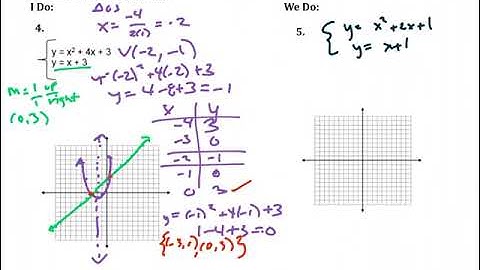 I Do:
4.
AOS
x = -4/2(1) = -2
y = x² + 4x + 3
y = x + 3
V(-2, -1)
y = (-2)² + 4(-2) + 3
y = 4 - 8 + 3 = -1
m = 1/1 up/right
(0, 3)
x y
-4 3
-3 0
-2 -1
-1 0
0 3
y = (-1)² + 4(-1) + 3
1 - 4 + 3 = 0
{(-3, ), (0, 3)}
We Do:
5.
y = x² + 2x + 1
y = x + 1